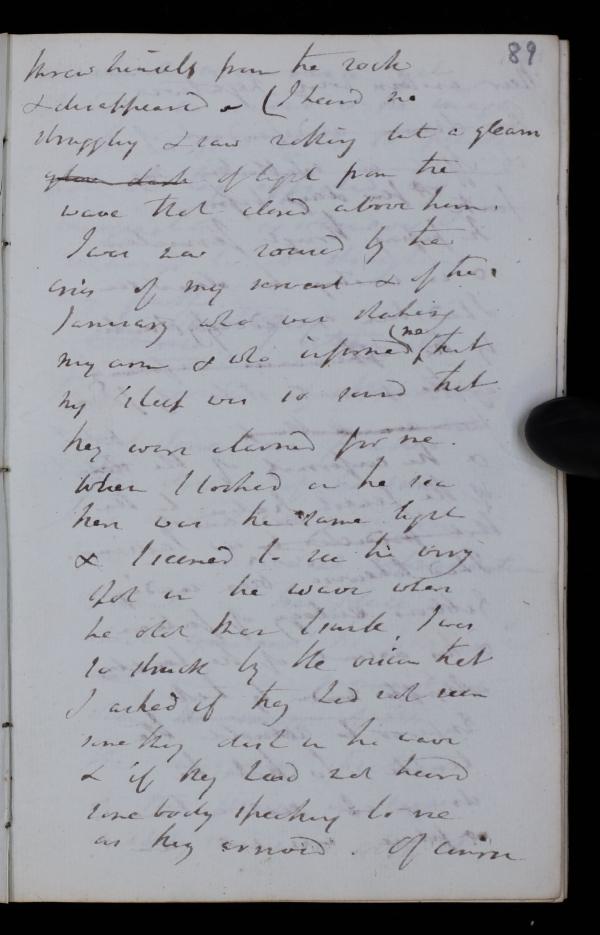 89
threw himself from the rock
& disappeared. (I heard no
struggling & saw nothing but a gleam
of light from the
wave that closed above him.
I was now roused by the
cries of my servant & of the
Janissary who was shaking
my arm & who informed me that
my sleep was so sound that
they were alarmed for me.
When I looked on the sea
there was the same light
& I seemed to see the very
spot in the wave where
the old man sunk. I was
so struck by the vision that
I asked if they had not seen
something dash in the wave
& if they had not heard
somebody speaking to me
as they arrived. Of course